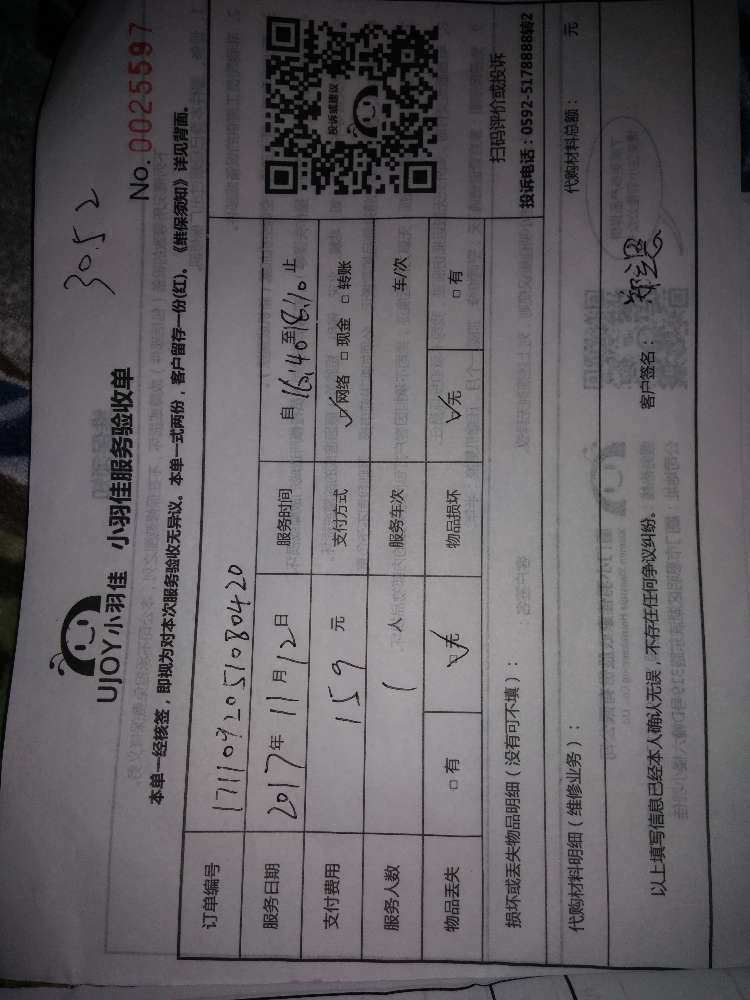 3052
UJOY小羽佳 小羽佳服务验收单
No. 0025597
本单一经核签，即视为对本次服务验收无异议。本单一式两份，客户留存一份(红)。《维保须知》详见背面。
订单编号 1711092051080420
服务日期 2017年 11月 12日 服务时间 自 16:40 至 18:10 止
支付费用 159 元 支付方式 ☑网络 □现金 □转账
服务人数 1 人 服务车次 车/次
物品丢失 □有 ☑无 物品损坏 ☑无 □有
投诉或建议
扫码评价或投诉
投诉电话：0592-5178888转2
损坏或丢失物品明细（没有可不填）：
代购材料明细（维修业务）： 代购材料总额： 元
以上填写信息已经本人确认无误，不存在任何争议纠纷。 客户签名：